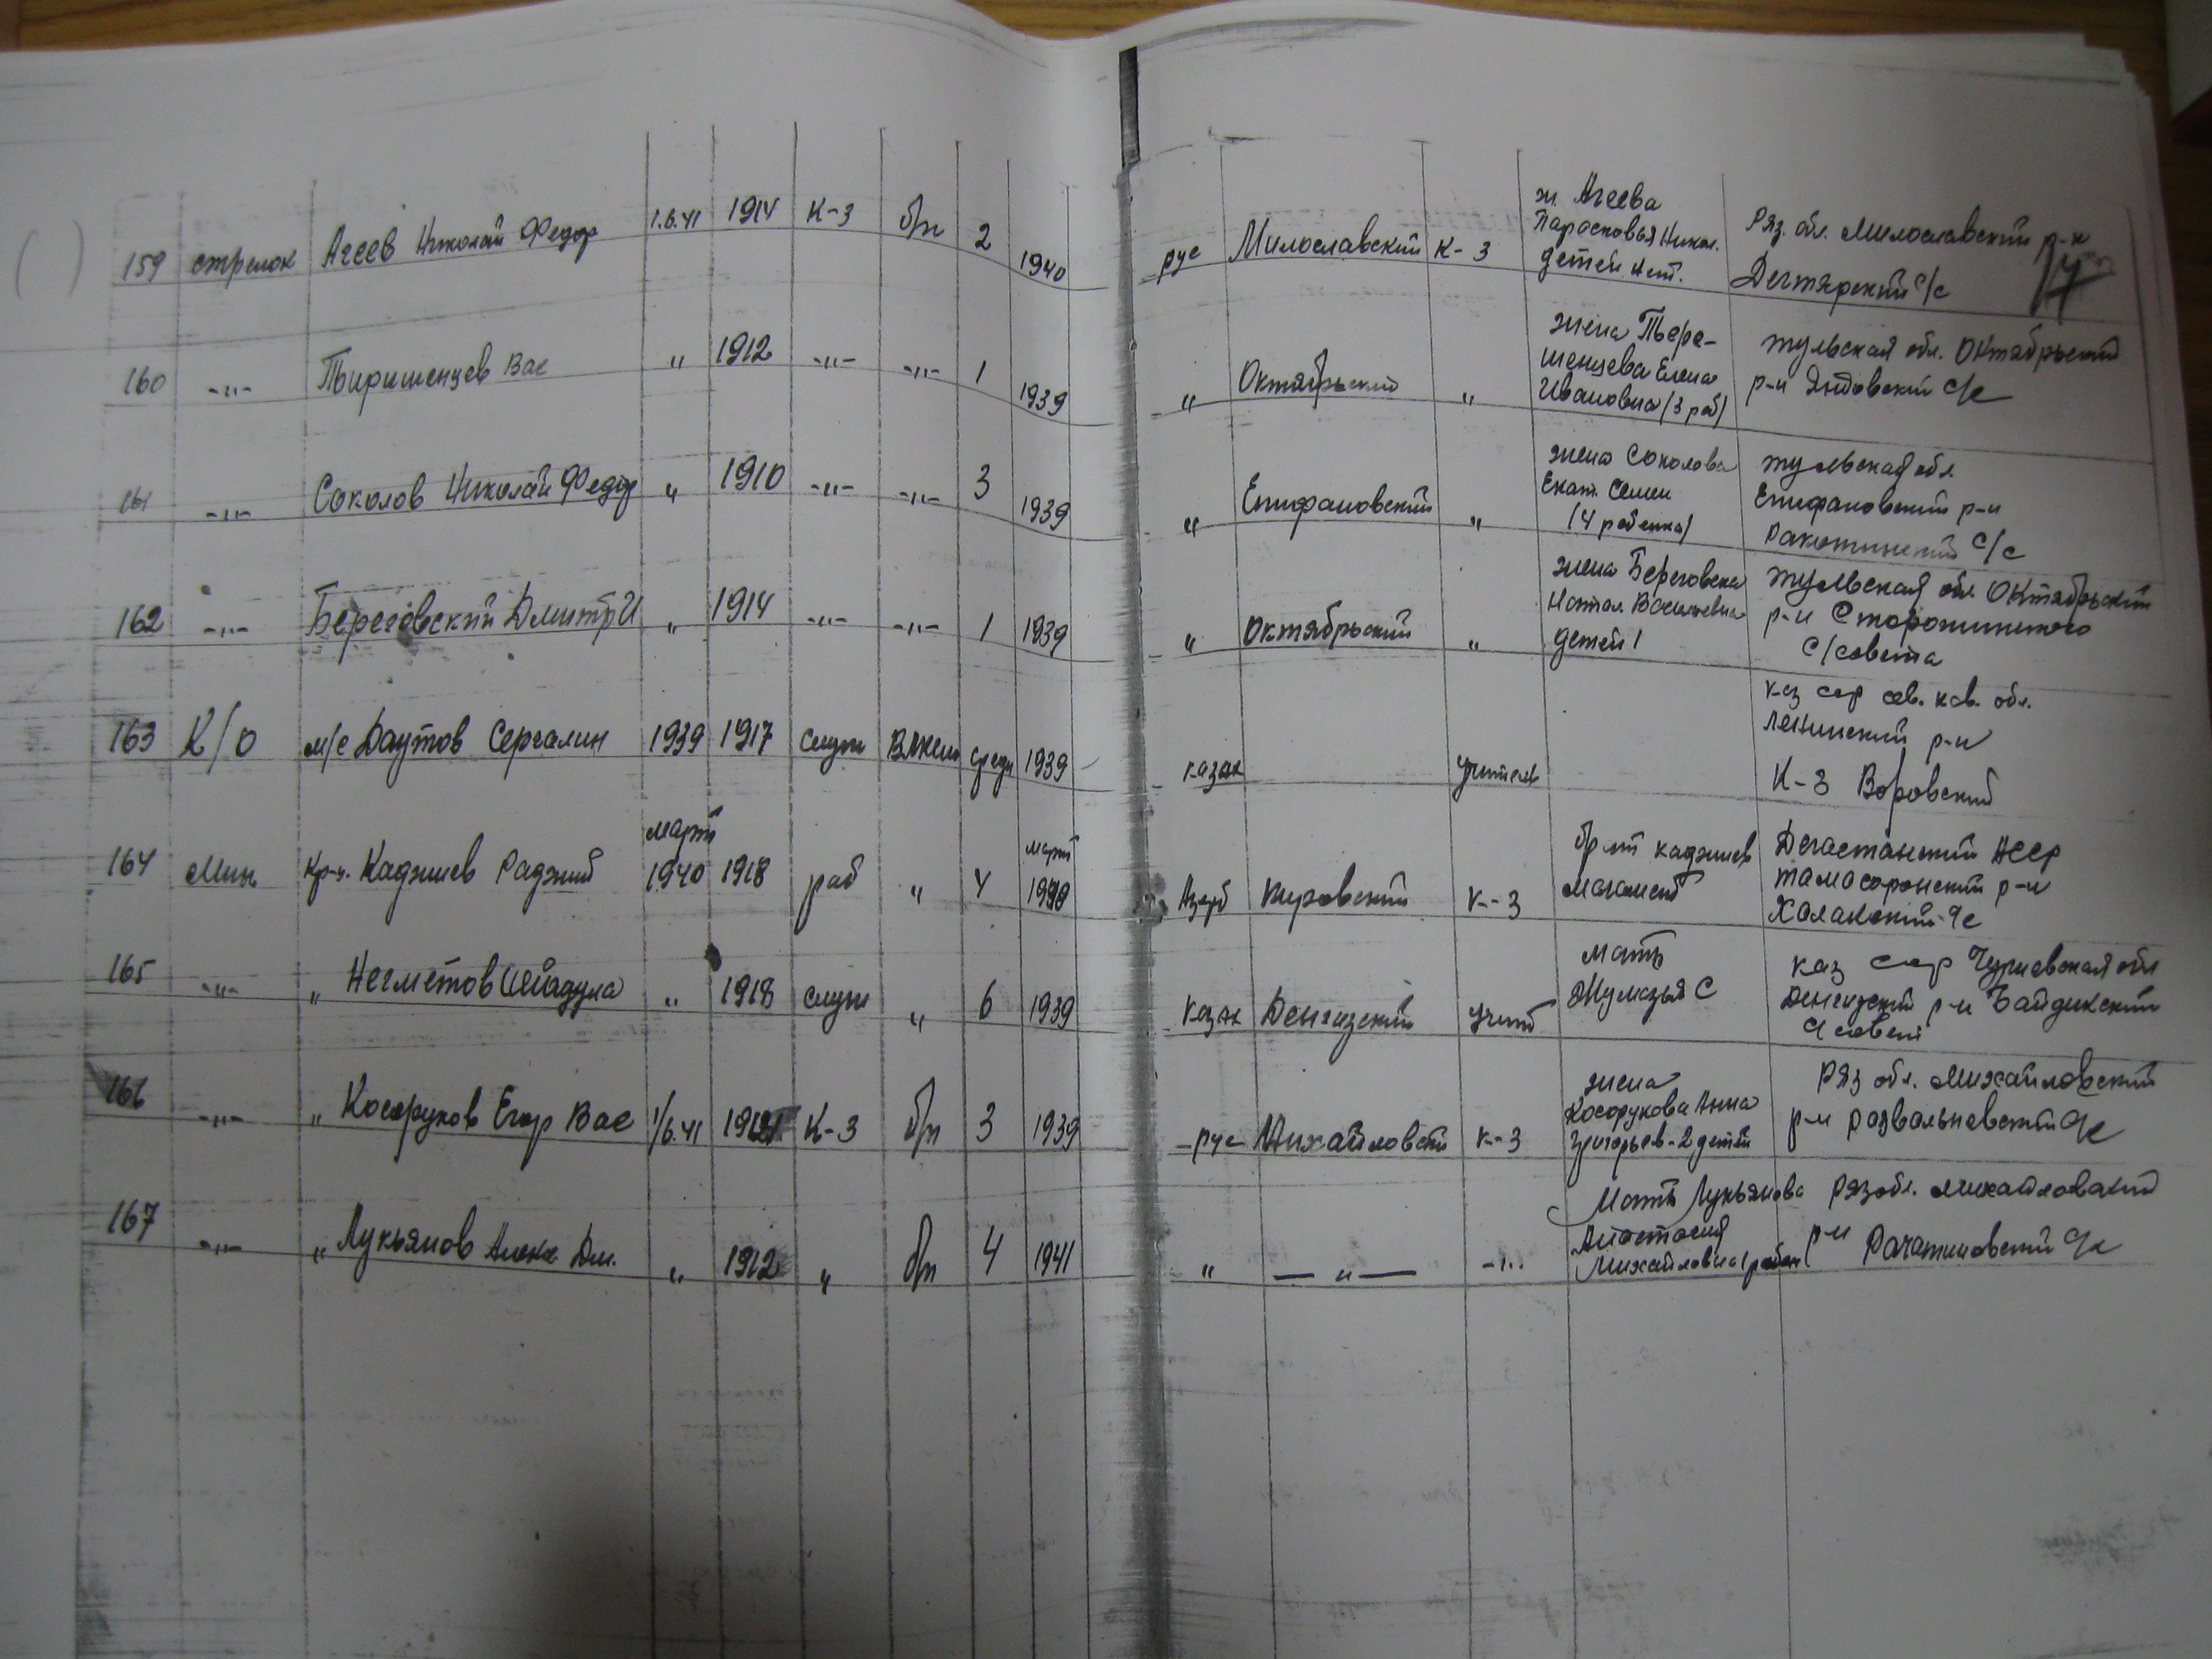 159 стрелок Агеев Николай Федор 1.6.41 1914 К-3 б/п 2 1940 рус Милославский К-3 ж. Агеева Ряз. обл. Милославский р-н
Парасковья Никол. Дегтярский с/с
детей нет. 17
160 -"- Тьиришенцев Вас " 1912 -"- -"- 1 1939 " Октябрьский " жена Тьере- Тульская обл. Октябрьский
шенцева Елена р-н с/с
Ивановна (3 реб)
161 -"- Соколов Николай Федор " 1910 -"- -"- 3 1939 " Епифановский " жена Соколова Тульская обл.
Екат. Семен Епифановский р-н
(4 ребенка) с/с
162 -"- Береговский Дмитр И " 1914 -"- -"- 1 1939 " Октябрьский " жена Береговска Тульская обл. Октябрьский
Натал. Васильевна р-н
детей 1 с/совета
163 К/о м/с Даутов Сергалин 1939 1917 служ Влксм средн 1939 казах учитель каз сср сев. каз. обл.
Ленинский р-н
К-3 Воровский
164 Мин Кр-ц. Каджиев Раджий март 1940 1918 раб " 4 март 1940 Азерб Кировский К-3 брат каджиев Дагастанский АССР
р-н
с/с
165 -"- " Негметов " 1918 служ " 6 1939 казах Денгизский учит мать каз сср обл
Жумазья С Денгизский р-н Байдикский
с/совет
166 -"- " Косоруков Егор Вас 1/6.41 К-3 б/п 3 1939 -рус Михайловски К-3 жена Ряз обл. Михайловский
Косорукова Анна р-н с/с
Григорьев-2 детей
167 -"- " Лукьянов Алекс Дм. " 1912 " б/п 4 1941 " — " — -"- Мать Лукьянова Ряз обл. Михайловский
Анастасия р-н с/с
Михайловна